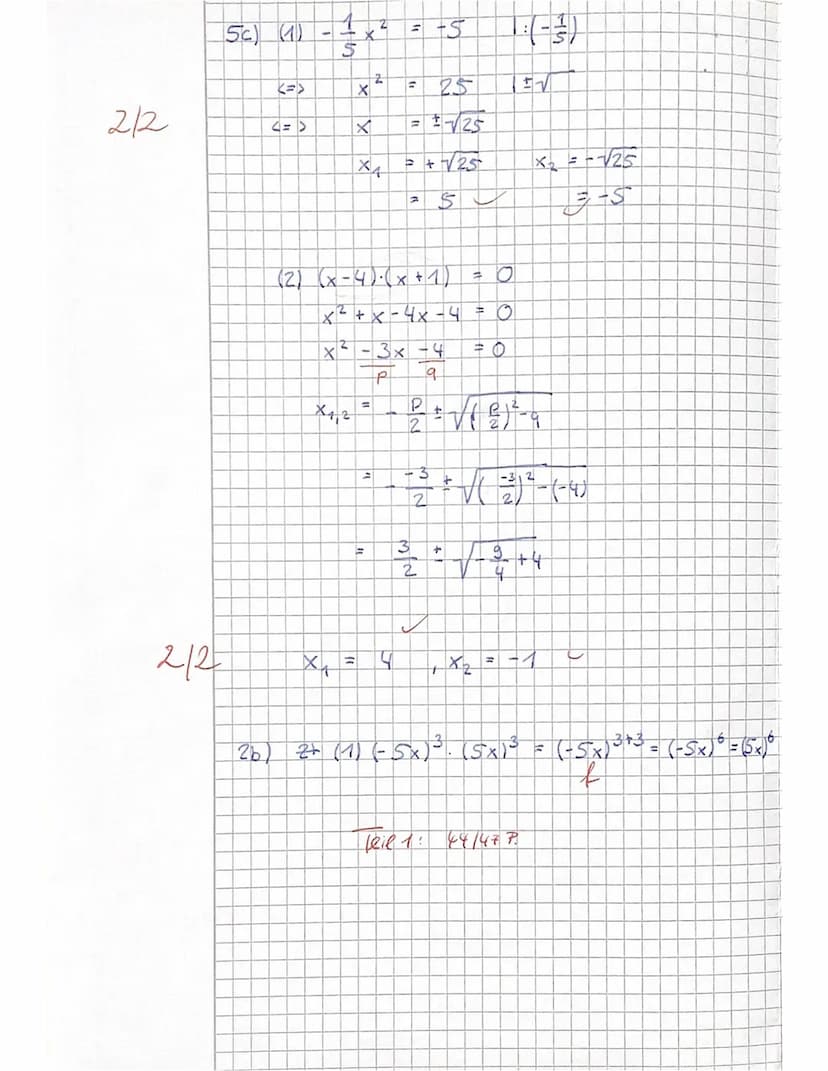 5c) (1) - 1/5 x² = -5 | : (-1/5)
<=> x² = 25 | ±√
2/2
<=> x = ±√25
x₁ = +√25 x₂ = -√25
= 5 ✓ = -5 ✓
(2) (x-4)·(x+1) = 0
x² + x - 4x - 4 = 0
x² - 3x - 4 = 0
p q
x₁,₂ = - p/2 ± √((p/2)² - q
= - -3/2 ± √((-3/2)² - (-4)
= 3/2 ± √(- 9/4 + 4
✓
2/2 x₁ = 4 , x₂ = -1 ✓
2b) (1) (-5x)³ · (5x)³ = (-5x)³⁺³ = (-5x)⁶ = (5x)⁶
f
Teil 1: 44/47 P.